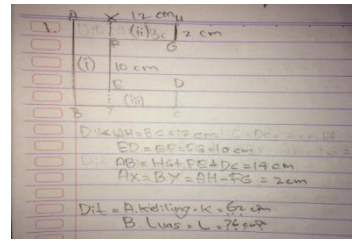 A X 12 cm H
1. (ii) 2 cm
F G
(i) 10 cm
E D
(iii)
B Y C
Dik: AH = BC = 12 cm
ED = EF = FG = 10 cm
AB = HG + FE + DC = 14 cm
AX = BY = AH - FG = 2 cm
Dit = A. Keliling = K = 62 cm
B Luas = L = 76 cm²